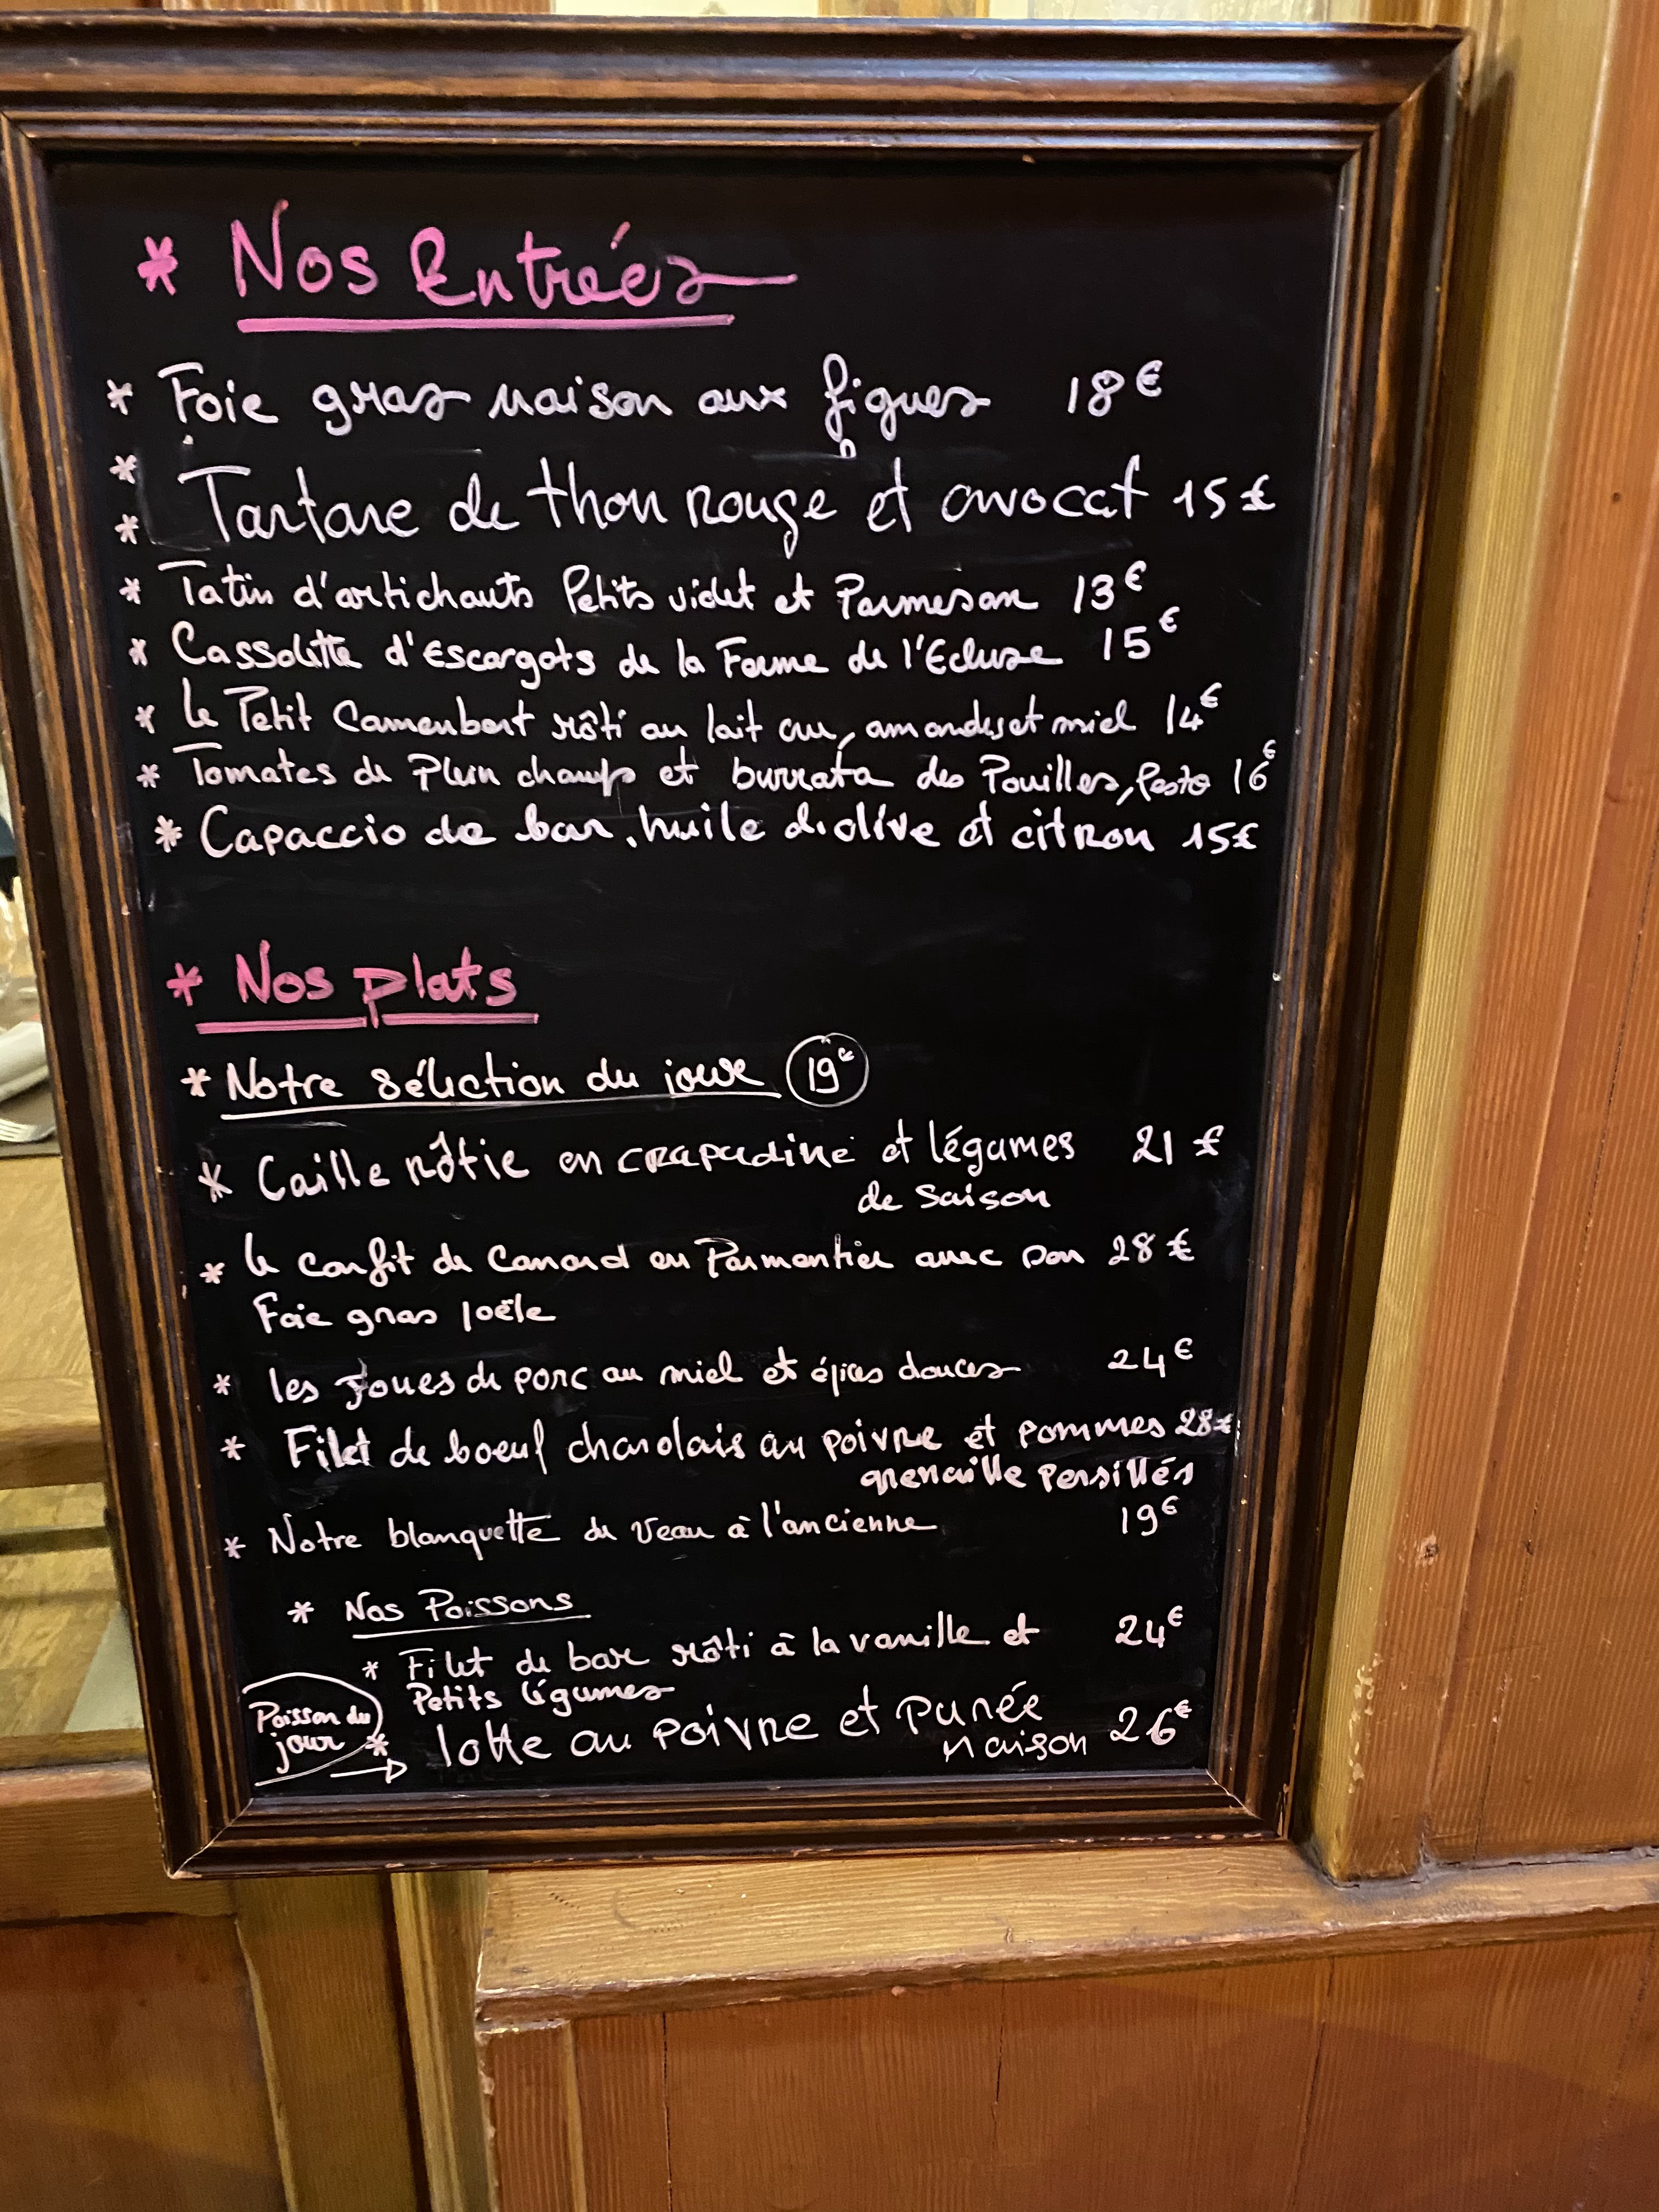 * Nos Entrées
* Foie gras maison aux figues 18€
*
* Tartare de thon rouge et avocat 15€
* Tatin d'artichauts Petits violet et Parmesan 13€
* Cassolette d'Escargots de la Ferme de l'Ecluse 15€
* Le Petit Camembert rôti au lait cru, amandes et miel 14€
* Tomates de Plein champ et burrata des Pouilles, Pesto 16€
* Capaccio de bar, huile d'olive et citron 15€
* Nos plats
* Notre sélection du jour 19€
* Caille rôtie en crapudine et légumes 21€
de saison
* Le confit de Canard en Parmentier avec son 28€
Foie gras poêle
* les Joues de porc au miel et épices douces 24€
* Filet de boeuf charolais au poivre et pommes 28€
grenaille persillés
* Notre blanquette de Veau à l'ancienne 19€
* Nos Poissons
* Filet de bar rôti à la vanille et 24€
Petits légumes
Poisson du
jour * → lotte au poivre et purée 26€
maison